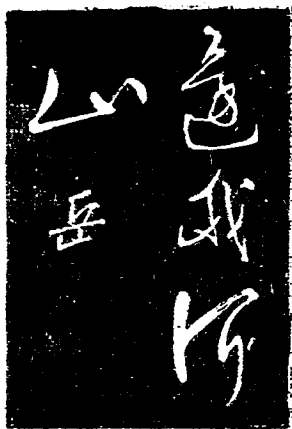 還我河
山岳